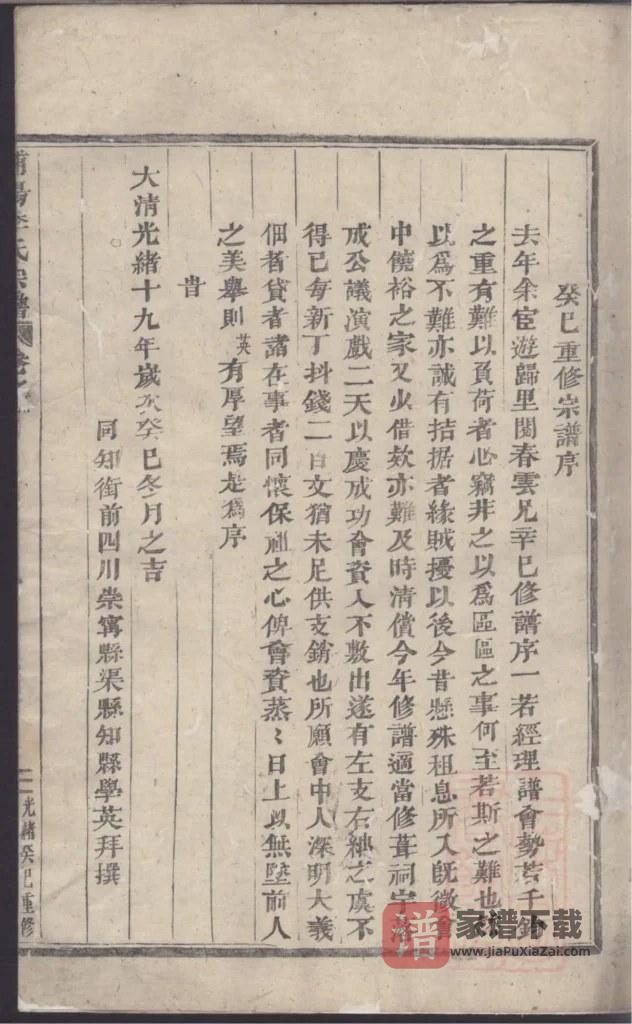 癸巳重修宗譜序
去年余宦遊歸里閱春雲兄辛巳修譜序一若經理譜會勢若千鈞
之重有難以負荷者心竊非之以爲區區之事何至若斯之難也
以爲不難亦誠有拮据者緣賊擾以後今昔懸殊租息所入旣微會
中饒裕之家又少借欵亦難及時清償今年修譜適當修葺祠宇落
成公議演戲二天以慶成功會資入不敷出遂有左支右絀之虞不
得已每新丁抖錢二百文猶未足供支銷也所願會中人深明大義
佃者貸者諸在事者同懷保祖之心俾會資蒸〻日上以無墜前人
之美舉則英有厚望焉是爲序
旹
大清光緒十九年歲次癸巳冬月之吉
同知銜前四川崇寧縣渠縣知縣學英拜撰
李氏宗譜
光緒癸巳重修
譜
家谱下载
www.jiaPuXiaZai.com